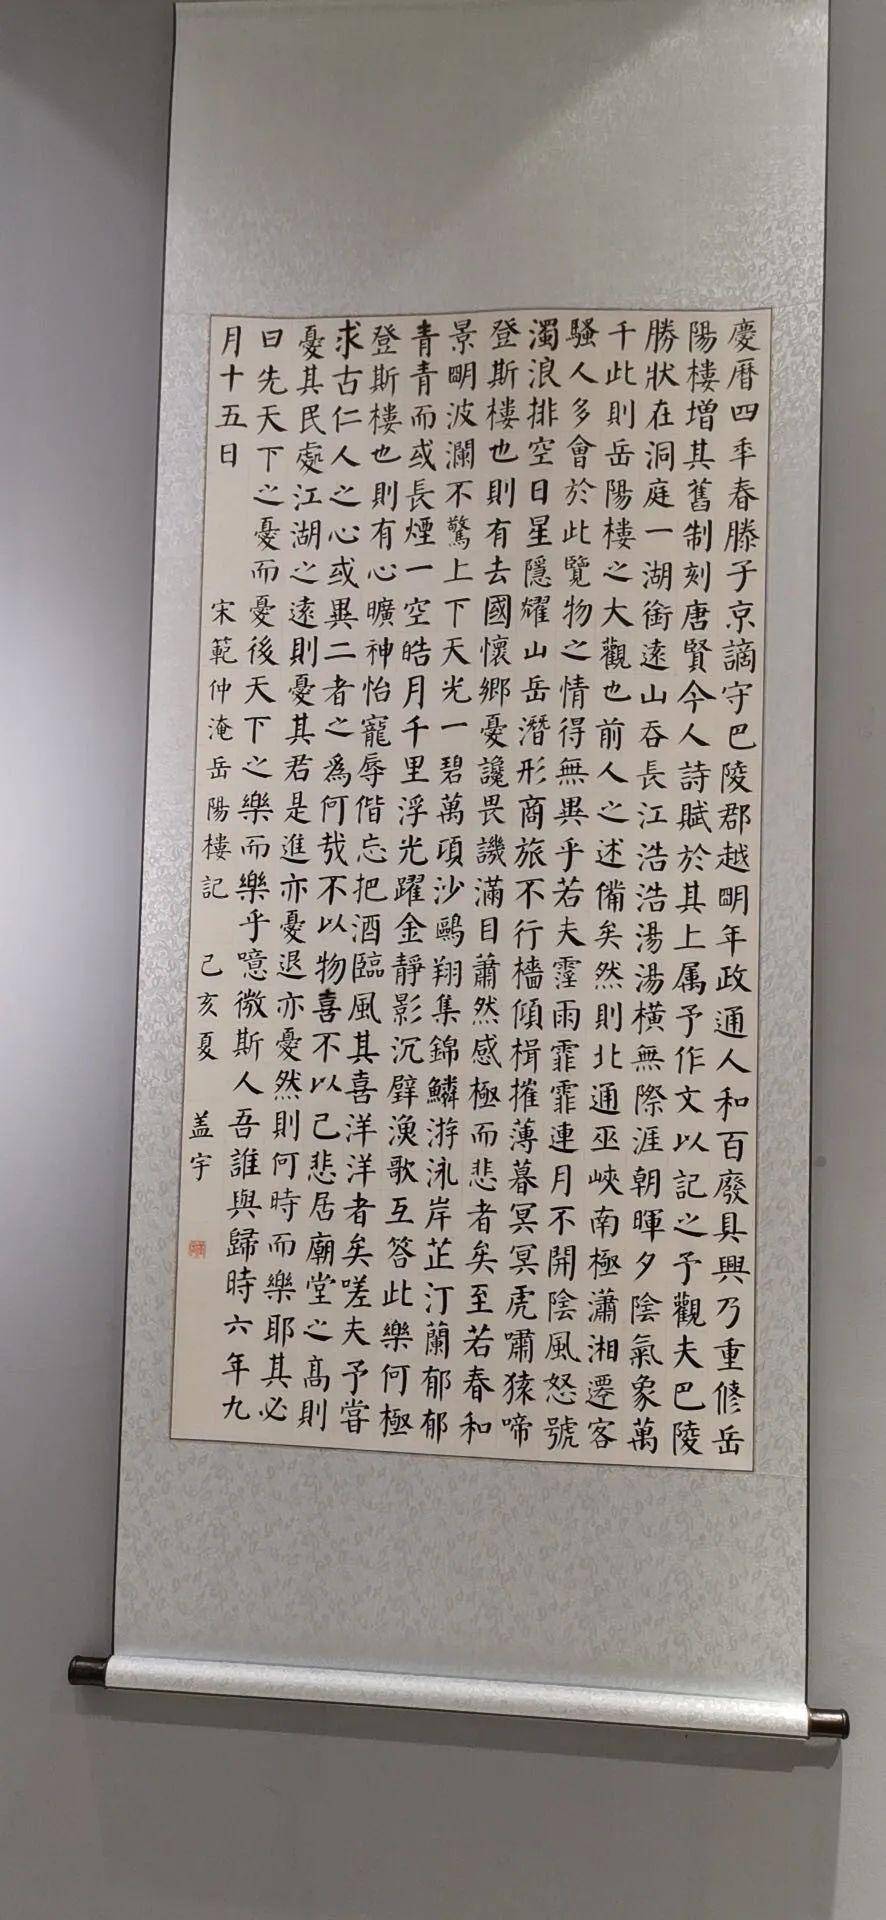 慶曆四年春滕子京謫守巴陵郡越朙年政通人和百廢具興乃重修岳
陽樓增其舊制刻唐賢今人詩賦於其上属予作文以記之予觀夫巴陵
勝狀在洞庭一湖銜遠山吞長江浩浩湯湯橫無際涯朝暉夕陰氣象萬
千此則岳陽樓之大觀也前人之述備矣然則北通巫峽南極瀟湘遷客
騷人多會於此覽物之情得無異乎若夫霪雨霏霏連月不開陰風怒號
濁浪排空日星隱耀山岳潛形商旅不行檣傾楫摧薄暮冥冥虎嘯猿啼
登斯樓也則有去國懷鄉憂讒畏譏滿目蕭然感極而悲者矣至若春和
景朙波瀾不驚上下天光一碧萬頃沙鷗翔集錦鱗游泳岸芷汀蘭郁郁
青青而或長煙一空皓月千里浮光躍金靜影沉璧漁歌互答此樂何極
登斯樓也則有心曠神怡寵辱偕忘把酒臨風其喜洋洋者矣嗟夫予嘗
求古仁人之心或異二者之為何哉不以物喜不以己悲居廟堂之高則
憂其民處江湖之遠則憂其君是進亦憂退亦憂然則何時而樂耶其必
曰先天下之憂而憂後天下之樂而樂乎噫微斯人吾誰與歸時六年九
月十五日 宋範仲淹岳陽樓記 己亥夏 盖宇